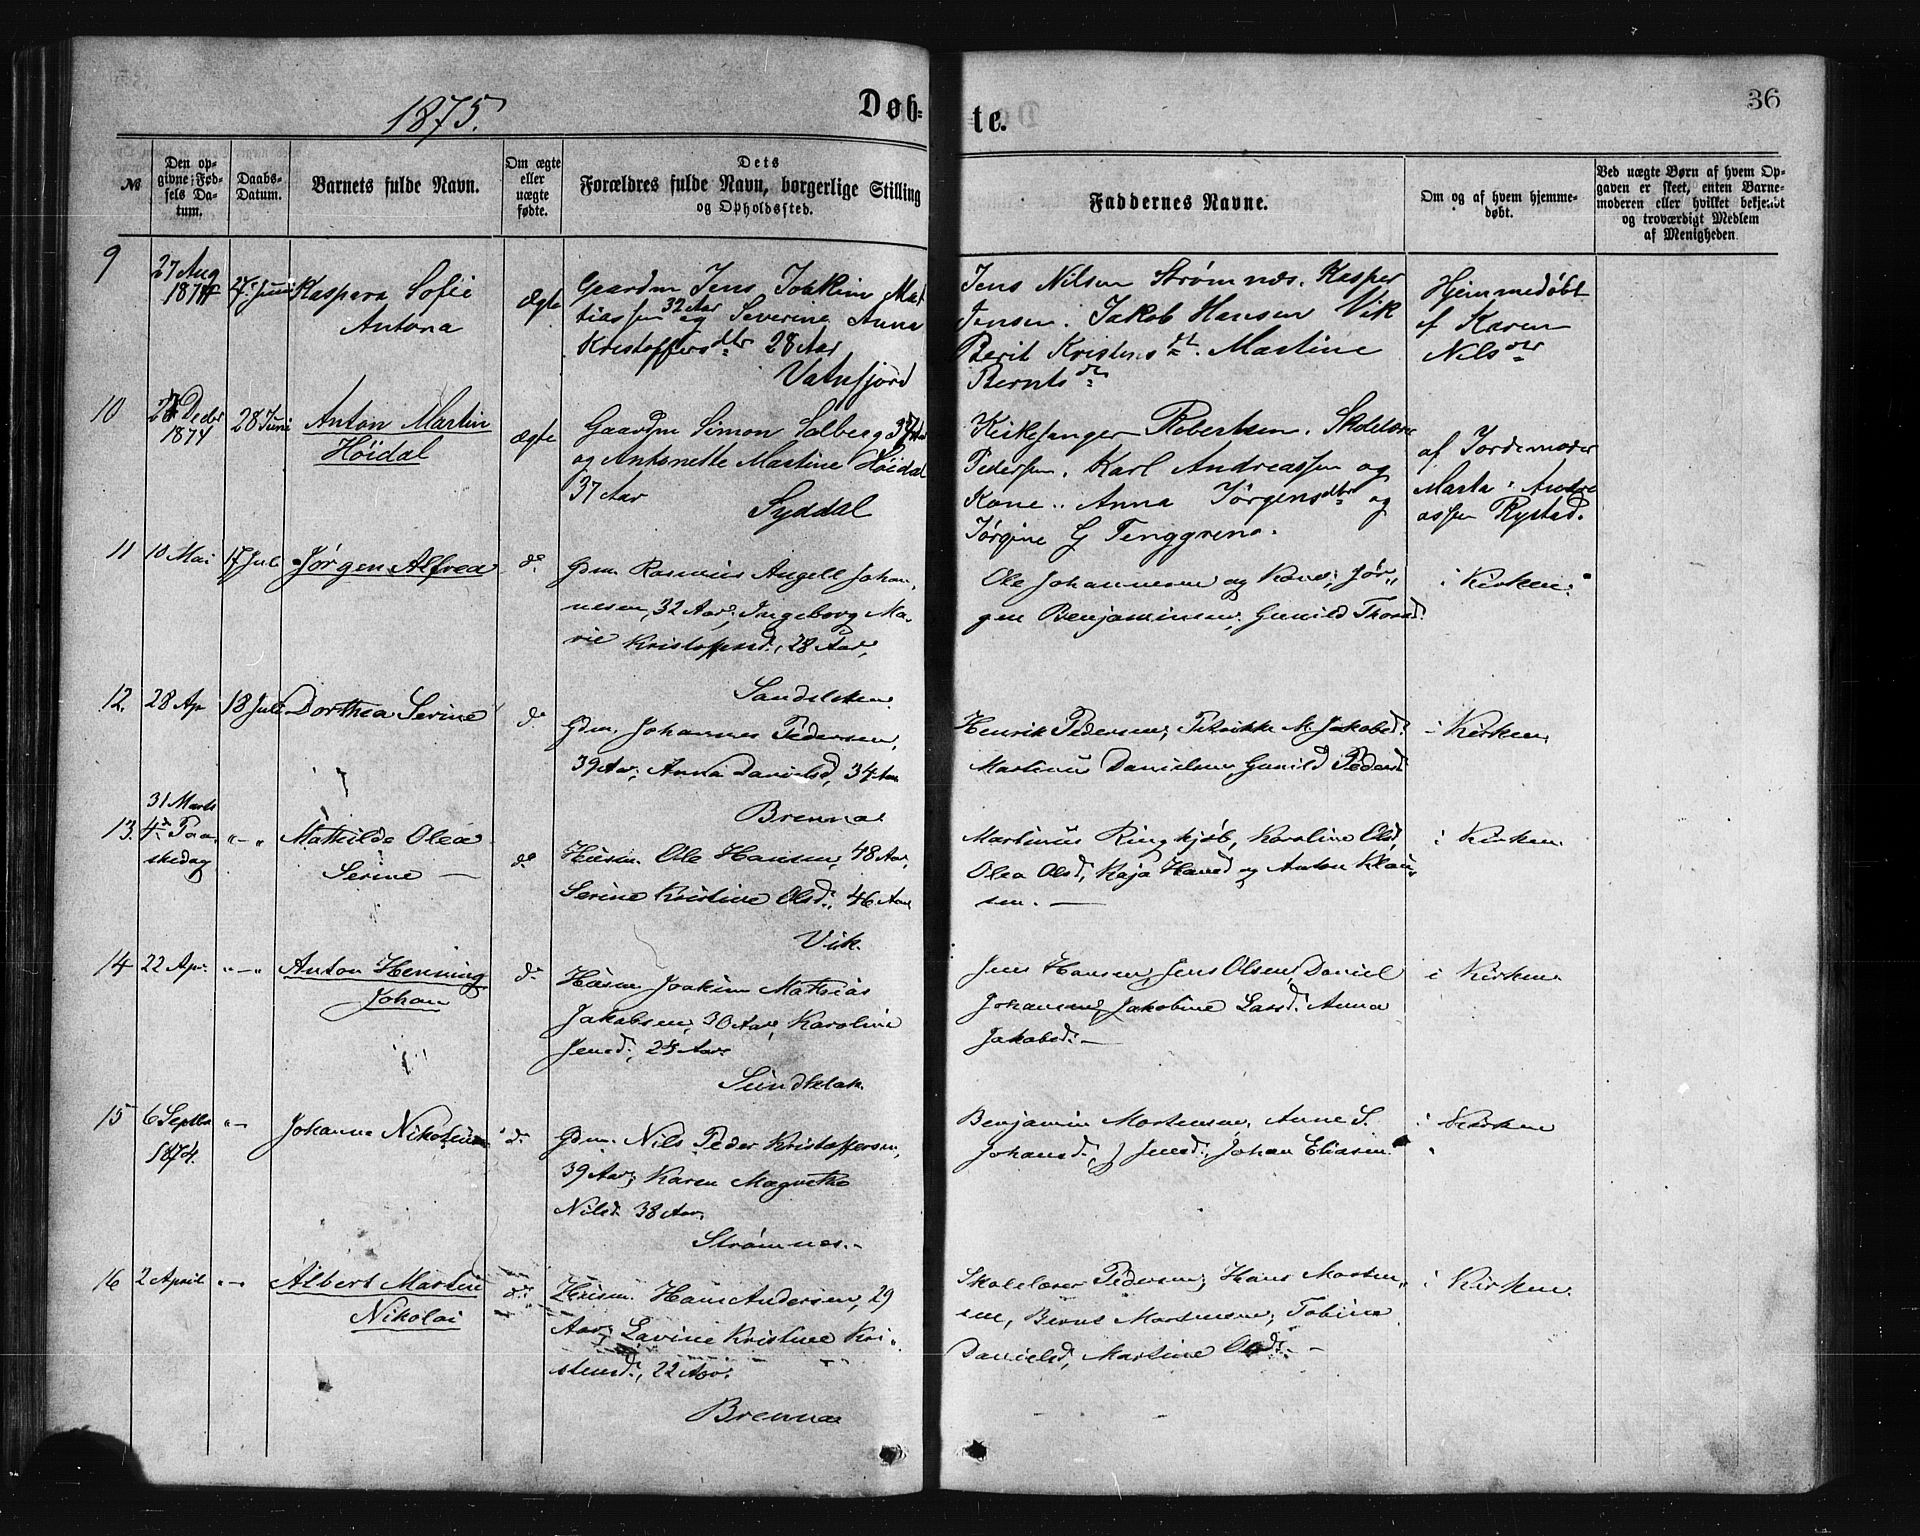 1875.
Døb-
te.
36
№
Den op-
givne Fød-
sels Da-
tum.
Daabs-
Datum.
Barnets fulde Navn.
Om ægte
eller
uægte
fødte.
Dets
Forældres fulde Navn, borgerlige Stilling
og Opholdssted.
Faddernes Navne.
Om og af hvem hjemme-
døbt.
Ved uægte Børn af hvem Op-
gaven er skeet, enten Barne-
moderen eller hvilket bekjendt
og troværdigt Medlem
af Menigheden.
9
27 Aug
1874
27 Juni
Kaspara Sofie
Antona
ægte
Gaardm Jens Joakim Mat
tiassen 32 Aar og Severine Anna
Kristoffersdtr 28 Aar
Vatnfjord
Jens Nilsen Strømnæs. Kasper
Jensen. Jakob Hansen Vik
Berit Kristensdt. Martine
Berntsdtr
Hjemmedøbt
af Karen
Nilsdtr
10
Decbr
1874
28 Juni
Anton Martin
Høidal
ægte
Gaardm Simon Solberg 37 Aar
og Antonette Martine Høidal
37 Aar
Syddal
Kirkesanger Robertsen. Skolelærer
Pedersen. Karl Andreassen og
Kone. Anna Jørgensdtr og
Jørgine G Tenggrena.
af Jordemoder
Marta Andre
assen Rystad.
11
10 Mai
17 Juli
Jørgen Alfred
do
Gdm. Rasmus Angell Johan-
nesen, 32 Aar; Ingeborg Ma-
rie Kristoffersd., 28 Aar,
Sandsleten
Ole Johannesen og Kone, Jør-
gen Benjaminsen, Gunild Thorsd.
i Kirken.
12.
28 Ap
18 Juli
Dorthea Serine
do
Gdm. Johannes Pedersen,
39 Aar; Anna Danielsd, 34 Aar
Brenna
Henrik Pedersen; Petrikke M. Jakobsd.
Martinus Danielsen, Gunild Pedersd
i Kirken.
13.
31 Marts
4de Paa-
skedag
"—"
Mathilde Olea
Serine —
do
Husm. Ole Hansen, 48 Aar,
Serine Kristine Olsd., 46 Aar
Vik.
Martinus Ringkjøb, Karoline Olsd,
Olea Olsd, Kaja Hansd og Anton Klau-
sen. —
i Kirken.
14
22 Ap.
"—"
Anton Henning
Johan
do
Husm Joakim Mathias
Jakobsen, 30 Aar, Karoline
Jensd., 24 Aar
Sundklak.
Jens Hansen, Jens Olsen, Daniel
Johansen, Jakobine Larsd. Anna
Jakobsd. —
i Kirken
15
6 Septbr
1874.
"—"
Johanna Nikoline
do
Gdm. Nils Peder Kristoffersen,
39 Aar; Karen Magrethe
Nilsd. 38 Aar,
Strømnes. —
Benjamin Mortensen, Anne S.
Johansd., J. Jensd., Johan Eliasen
i Kirken
16
2 April
"—"
Albert Martin
Nikolai
do
Husm. Hans Andersen, 29
Aar; Lavine Kristine Kri-
stensd., 22 Aar.
Brenna
Skolelærer Pedersen; Hans Morten-
sen, Bernt Mortensen; Tobine
Danielsd, Martine Olsd. —
i Kirken.